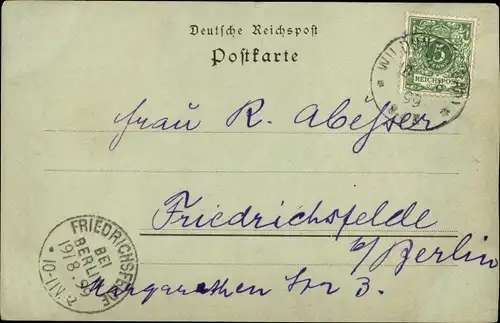 Deutsche Reichspost
Postkarte
5
REICHSPOST
99
Frau R. Abesser
Friedrichsfelde
b/Berlin
Margarethen Str 3.
FRIEDRICHSFELDE
BEI
BERLIN
19/8 99